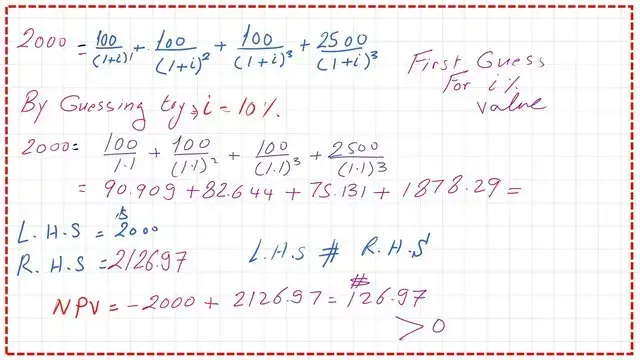 2000 = 100/(1+i)¹ + 100/(1+i)² + 100/(1+i)³ + 2500/(1+i)³
First Guess
For i%
value
By Guessing try, i = 10%
2000 = 100/1.1 + 100/(1.1)² + 100/(1.1)³ + 2500/(1.1)³
= 90.909 + 82.644 + 75.131 + 1878.29 =
L.H.S = 2000
R.H.S = 2126.97
L.H.S # R.H.S
NPV = -2000 + 2126.97 = 126.97
> 0